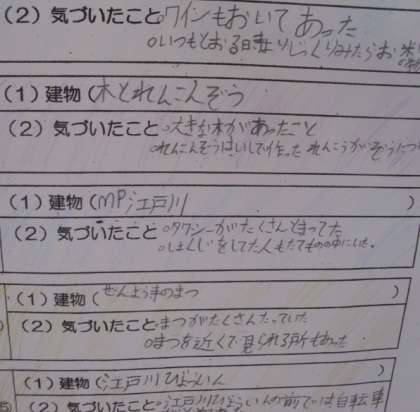 (2) 気づいたこと 。ワインもおいてあった
。いつもとおる時よりじっくりみたらお
(1) 建物 (木とれんこんぞう
(2) 気づいたこと 。大きな木があったこと
(1) 建物 (MP江戸川 )
(2) 気づいたこと 。タクシーがたくさんとまってた
。しょくじをしてた人もたてものの中にいた。
(1) 建物 (ぜんよう寺のまつ )
(2) 気づいたこと 。まつがたくさんたっていた
。まつを近くで見られる所もあった
(1) 建物 (江戸川びょういん )
(2) 気づいたこと 。江戸川びょういんの前ていは自転車